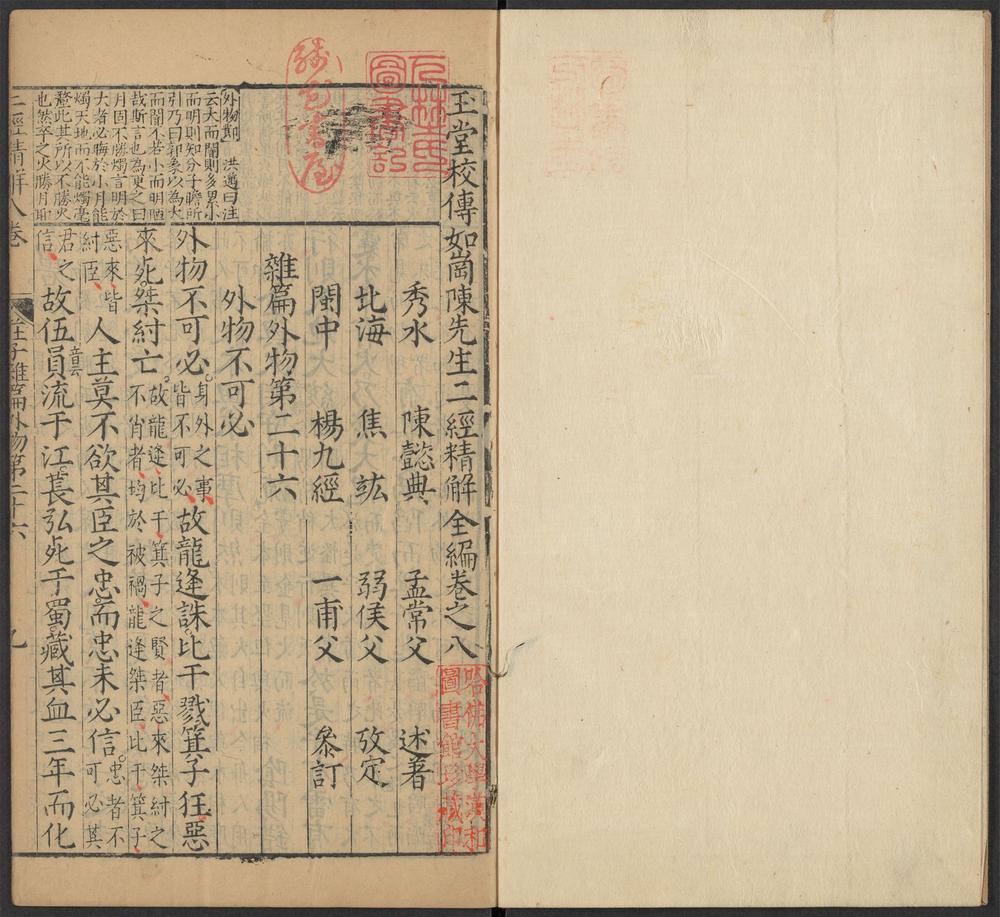 玉堂校傳如崗陳先生二經精解全編卷之八
秀水 陳懿典 孟常父 述著
北海 焦竑 弱侯父 攷定
閩中 楊九經 一甫父 叅訂
雜篇外物第二十六
外物不可必
外物不可必身外之事皆不可必故龍逢誅比干戮箕子狂惡
來死桀紂亡故龍逢比干箕子之賢者惡來桀紂之不肖者均於被禍龍逢桀臣比干箕子
惡來皆紂臣人主莫不欲其臣之忠而忠未必信忠者不可必其
君之信故伍員音云流于江萇弘死于蜀藏其血三年而化
外物
洪邁曰注
云大而闇則多累小
而明則知分子瞻所
引乃曰郭象以為大
而闇不若小而明陋
哉斯言也為更之曰
月固不勝燭言明於
大者必晦於小月能
燭天地而不能燭毫
釐此其所以不勝火
也然卒之火勝月耶
二經精解八卷
莊子雜篇外物第二十六
九
哈佛大學漢和
圖書館珍藏印
圖書記